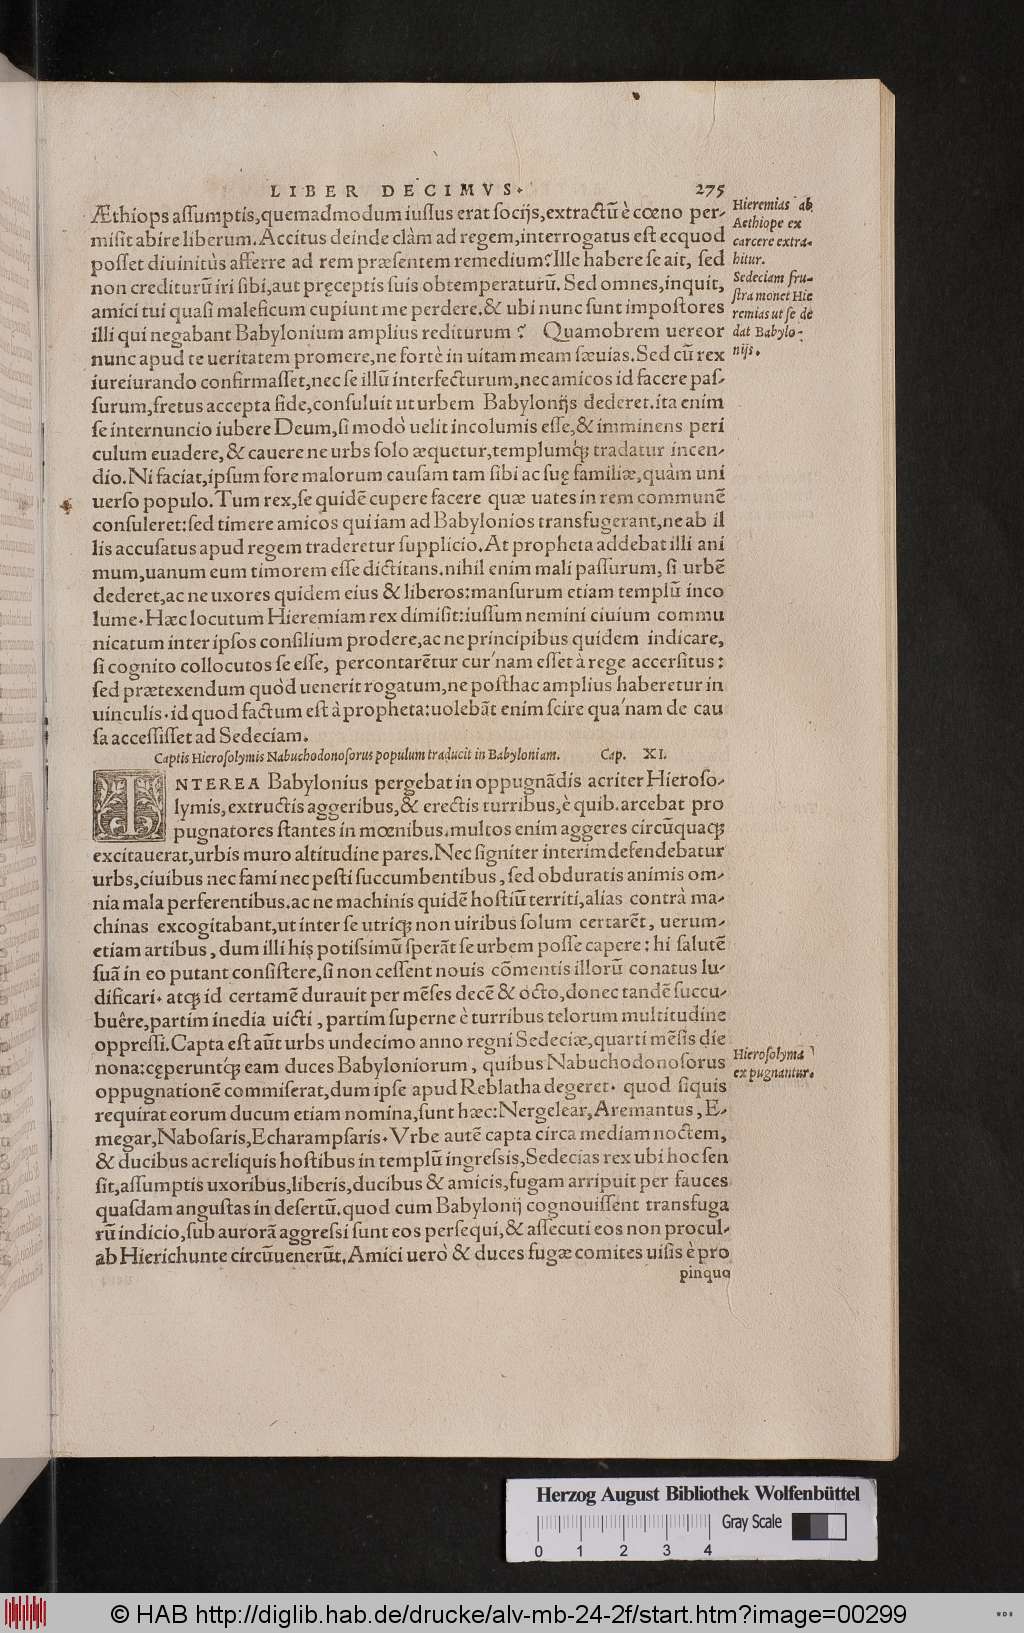 LIBER DECIMVS.
275
Æthiops aſſumptis,quemadmodum iuſſus erat ſocijs,extractũ è cœno per-
miſit abire liberum.Accitus deinde clàm ad regem,interrogatus eſt ecquod
poſſet diuinitùs afferre ad rem præſentem remedium?Ille habere ſe ait, ſed
non crediturũ iri ſibi,aut pręceptis ſuis obtemperaturũ. Sed omnes,inquit,
amici tui quaſi maleficum cupiunt me perdere.& ubi nunc ſunt impoſtores
illi qui negabant Babylonium amplius rediturum ? Quamobrem uereor
nunc apud te ueritatem promere,ne fortè in uitam meam ſæuias.Sed cũ rex
iureiurando confirmaſſet,nec ſe illũ interfecturum,nec amicos id facere paſ-
ſurum,fretus accepta fide,conſuluit ut urbem Babylonijs dederet.ita enim
ſe internuncio iubere Deum,ſi modò uelit incolumis eſſe,& imminens peri
culum euadere,& cauere ne urbs ſolo æquetur,templumq́; tradatur incen-
dio.Ni faciat,ipſum fore malorum cauſam tam ſibi ac ſuę familiæ,quàm uni
uerſo populo.Tum rex,ſe quidẽ cupere facere quæ uates in rem communẽ
conſuleret:ſed timere amicos qui iam ad Babylonios transfugerant,ne ab il
lis accuſatus apud regem traderetur ſupplicio.At propheta addebat illi ani
mum,uanum eum timorem eſſe dictitans.nihil enim mali paſſurum, ſi urbẽ
dederet,ac ne uxores quidem eius & liberos:manſurum etiam templũ inco
lume.Hæc locutum Hieremiam rex dimiſit:iuſſum nemini ciuium commu
nicatum inter ipſos conſilium prodere,ac ne principibus quidem indicare,
ſi cognito collocutos ſe eſſe, percontarẽtur cur'nam eſſet à rege accerſitus:
ſed prætexendum quòd uenerit rogatum,ne poſthac amplius haberetur in
uinculis.id quod factum eſt à propheta:uolebãt enim ſcire qua'nam de cau
ſa acceſſiſſet ad Sedeciam.
Captis Hieroſolymis Nabuchodonoſorus populum traducit in Babyloniam. Cap. XI.
INTEREA Babylonius pergebat in oppugnãdis acriter Hieroſo-
lymis,extructis aggeribus,& erectis turribus,è quib.arcebat pro
pugnatores ſtantes in mœnibus.multos enim aggeres circũquaq;
excitauerat,urbis muro altitudine pares.Nec ſigniter interim defendebatur
urbs,ciuibus nec fami nec peſti ſuccumbentibus, ſed obduratis animis om-
nia mala perferentibus.ac ne machinis quidẽ hoſtiũ territi,alias contrà ma-
chinas excogitabant,ut inter ſe utriq; non uiribus ſolum certarẽt, uerum-
etiam artibus, dum illi his potiſsimũ ſperãt ſe urbem poſſe capere: hi ſalutẽ
ſuã in eo putant conſiſtere,ſi non ceſſent nouis cõmentis illorũ conatus lu-
dificari. atq; id certamẽ durauit per mẽſes decẽ & octo,donec tandẽ ſuccu-
buêre,partim inedia uicti, partim ſuperne è turribus telorum multitudine
oppreſſi.Capta eſt aũt urbs undecimo anno regni Sedeciæ,quarti mẽſis die
nona:cęperuntq́; eam duces Babyloniorum, quibus Nabuchodonoſorus
oppugnationẽ commiſerat,dum ipſe apud Reblatha degeret. quod ſiquis
requirat eorum ducum etiam nomina,ſunt hæc:Nergelear,Aremantus, E-
megar,Naboſaris,Echarampſaris.Vrbe autẽ capta circa mediam noctem,
& ducibus ac reliquis hoſtibus in templũ ingreſsis,Sedecias rex ubi hoc ſen
ſit,aſſumptis uxoribus,liberis,ducibus & amicis,fugam arripuit per fauces
quaſdam anguſtas in deſertũ.quod cum Babylonij cognouiſſent transfuga
rũ indicio,ſub aurorã aggreſsi ſunt eos perſequi,& aſſecuti eos non procul-
ab Hierichunte circũuenerũt.Amici uerò & duces fugæ comites uiſis è pro
pinquo
Hieremias ab
Aethiope ex
carcere extra-
hitur.
Sedeciam fru-
ſtra monet Hie
remias ut ſe de
dat Babylo-
nijs.
Hieroſolyma
expugnantur.
Herzog August Bibliothek Wolfenbüttel
Gray Scale
0 1 2 3 4
© HAB http://diglib.hab.de/drucke/alv-mb-24-2f/start.htm?image=00299